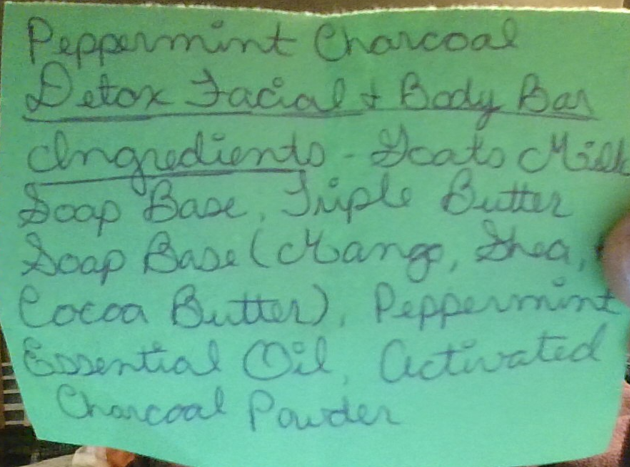 Peppermint Charcoal
Detox Facial + Body Bar
Ingredients - Goats Milk
Soap Base, Triple Butter
Soap Base (Mango, Shea,
Cocoa Butter), Peppermint
Essential Oil, Activated
Charcoal Powder